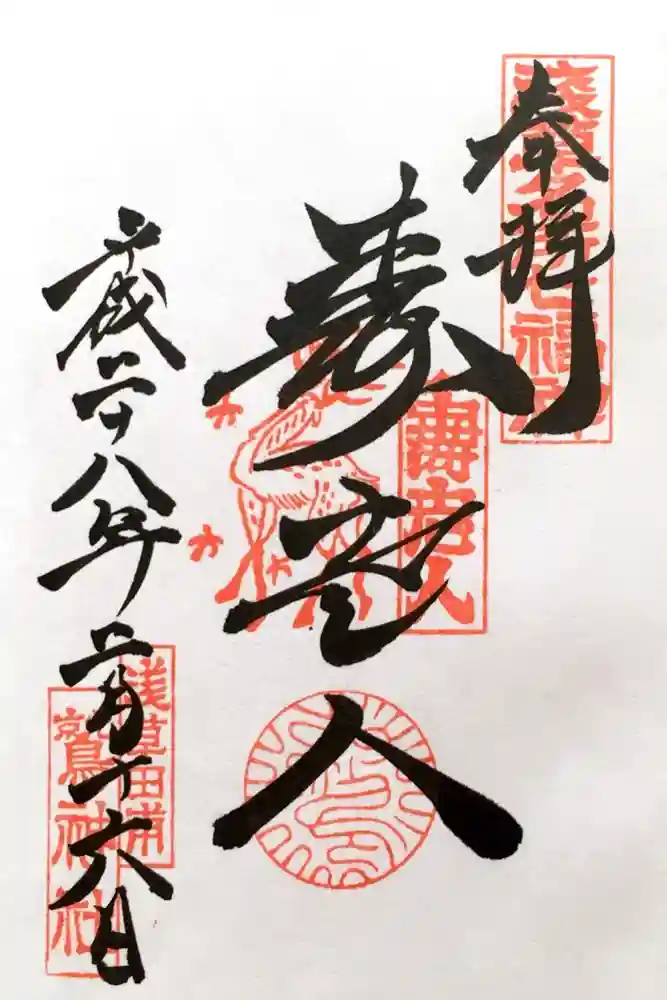 奉拝
浅草名所七福神
寿老人
壽老人
平成二十八年二月十六日
浅草田甫
鷲神社